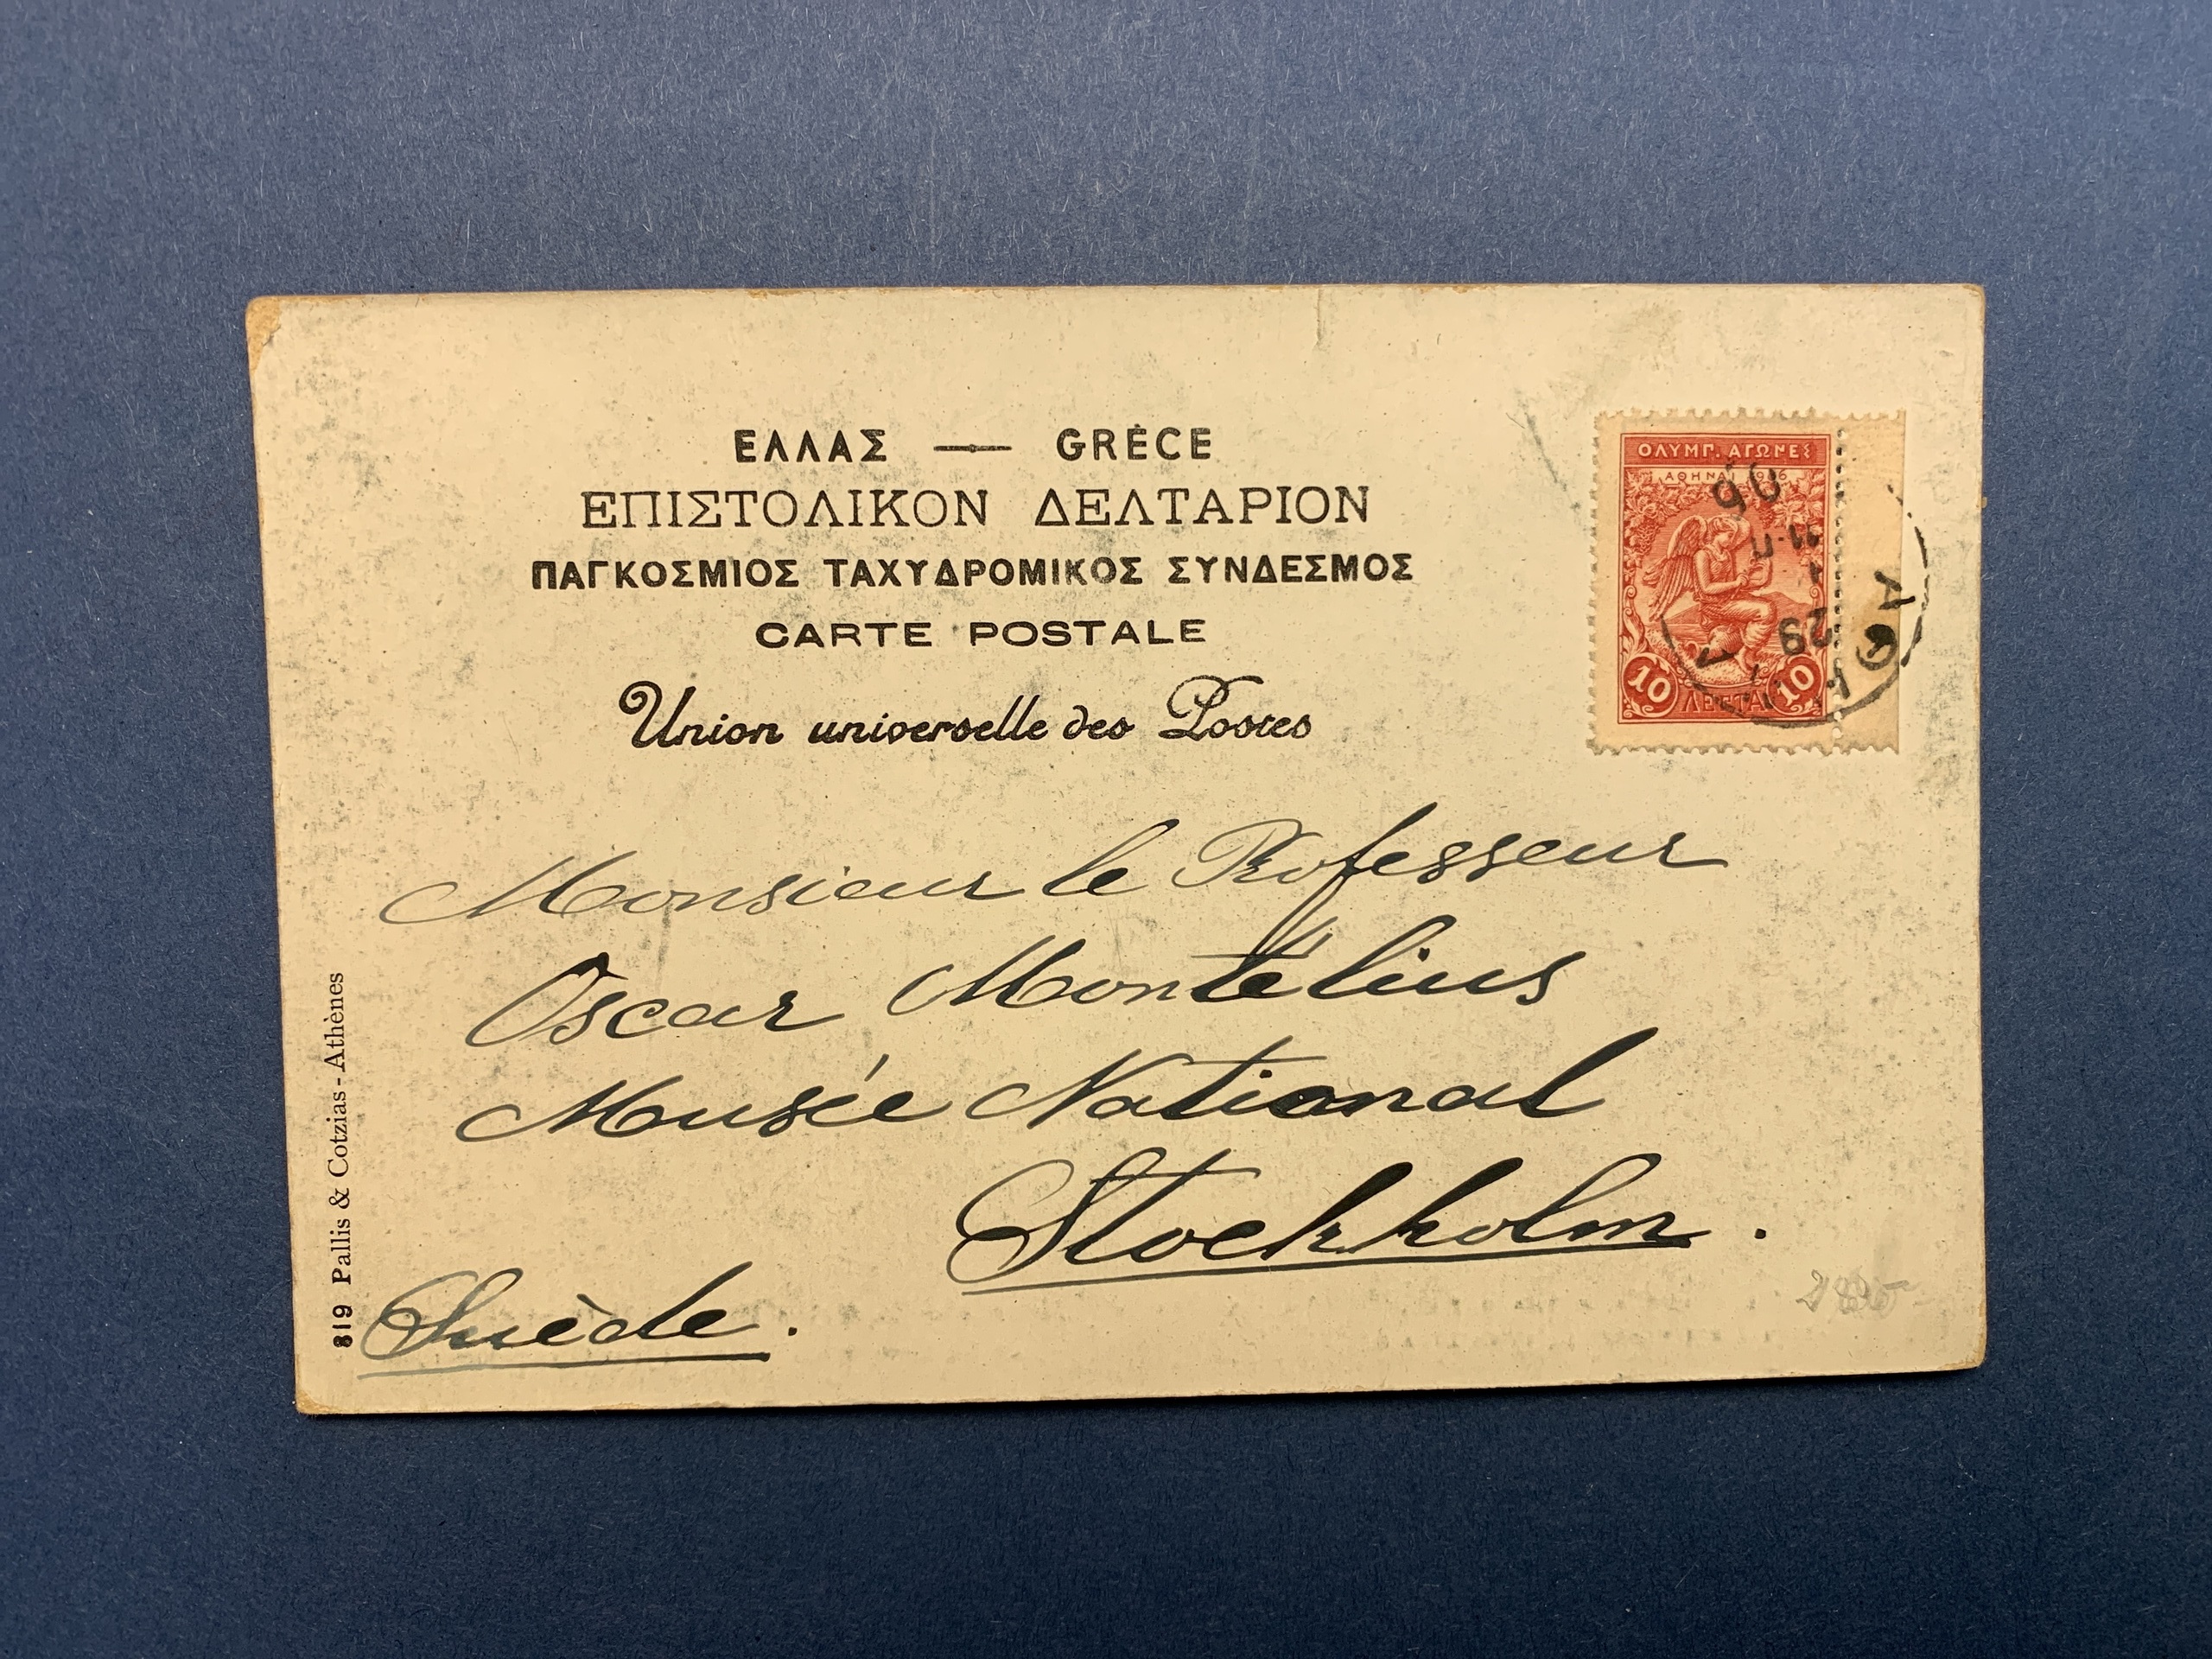 ΕΛΛΑΣ — GRÈCE
ΕΠΙΣΤΟΛΙΚΟΝ ΔΕΛΤΑΡΙΟΝ
ΠΑΓΚΟΣΜΙΟΣ ΤΑΧΥΔΡΟΜΙΚΟΣ ΣΥΝΔΕΣΜΟΣ
CARTE POSTALE
Union universelle des Postes
ΟΛΥΜΠ. ΑΓΩΝΕΣ
ΑΘΗΝΑΙ 1906
10 ΛΕΠΤΑ 10
29
11-Π
06
Monsieur le Professeur
Oscar Montelius
Musée National
Stockholm.
Suède.
819 Pallis & Cotzias - Athènes